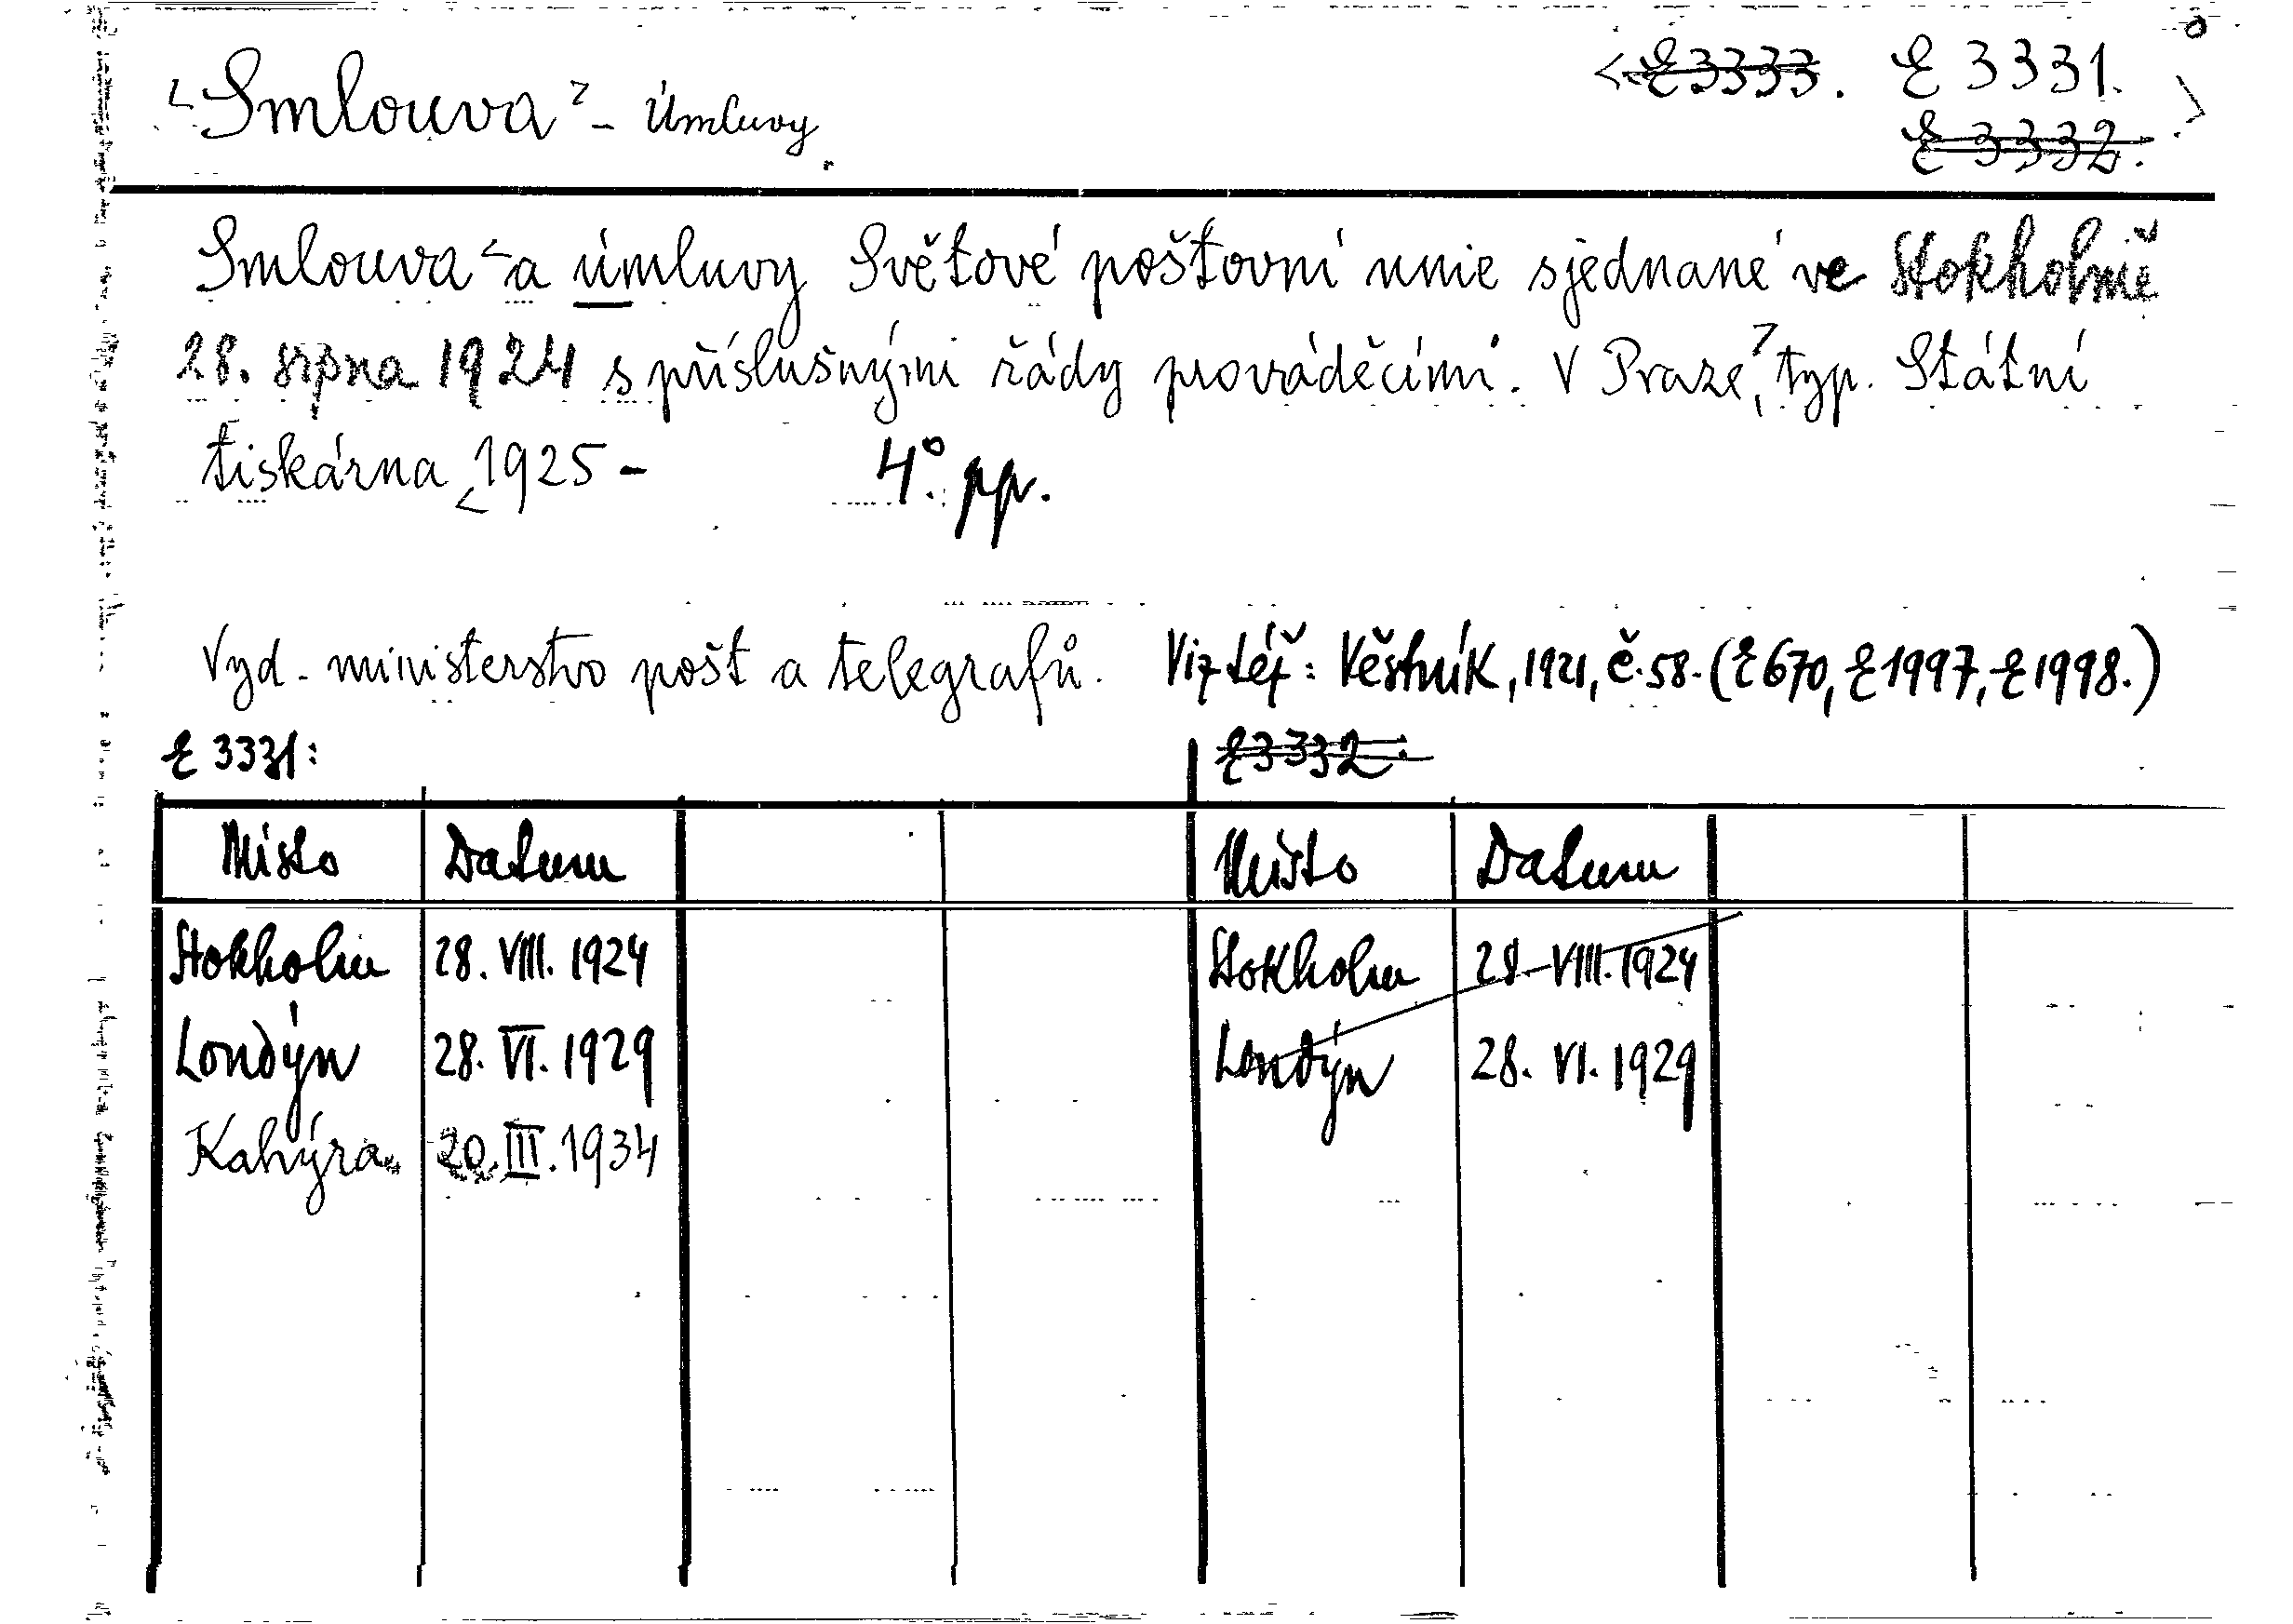 <Smlouva> - Úmluvy. <E 3333. E 3331.
E 3332.>
Smlouva < a úmluvy Světové poštovní unie sjednané ve Stokholmě
28. srpna 1924 s příslušnými řády prováděcími. V Praze, > typ. Státní
tiskárna < 1925 - 4°. pp.
Vyd. ministerstvo pošt a telegrafů. Viz též: Věstník, 1921, č. 58. (E 670, E 1997, E 1998.)
E 3331: E 3332:
Místo Datum Místo Datum
Stokholm 28. VIII. 1924 Stokholm 28. VIII. 1924
Londýn 28. VI. 1929 Londýn 28. VI. 1929
Kahýra 20. III. 1934